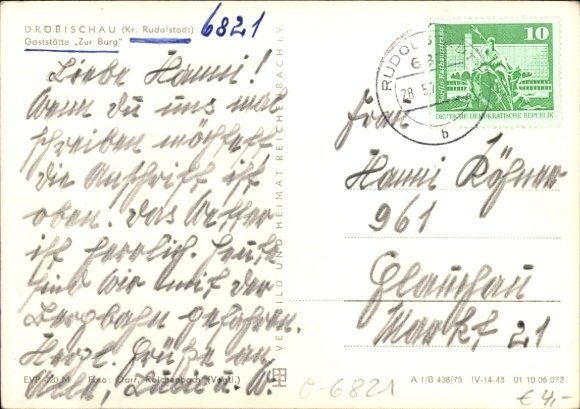 DRÖBISCHAU (Kr. Rudolstadt) 6821
Gaststätte „Zur Burg"
Liebe Hanni!
Wenn du uns mal
schreiben möchtest
die Anschrift ist
oben. Das Wetter
ist herrlich. Heute
sind wir mit der
Bergbahn gefahren.
Herzl. Grüße an
VERLAG BILD UND HEIMAT REICHENBACH I. V.
RUDOL
28. 5. 7
b
10
Berlin Rathausstraße
DEUTSCHE DEMOKRATISCHE REPUBLIK
Frau
Hanni Röhner
961
Glauchau
Markt 21
EVP 0,20 M Foto: Darr, Reichenbach (Vogtl.)
A 1/B 438/75 IV-14-48 01 10 06 072
O-6821
€ 4,-